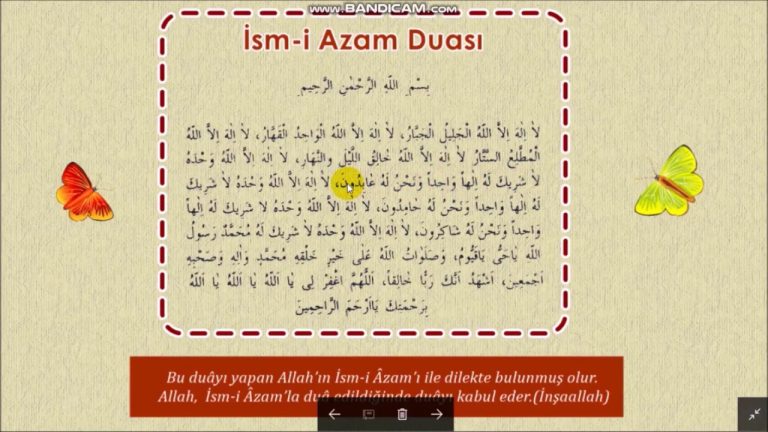 www.BANDICAM.com
İsm-i Azam Duası
بِسْمِ اللّٰهِ الرَّحْمٰنِ الرَّحِيمِ
لاٰ اِلٰهَ اِلاَّ اللّٰهُ الْجَلِيلُ الْجَبَّارُ، لاٰ اِلٰهَ اِلاَّ اللّٰهُ الْوَاحِدُ الْقَهَّارُ، لاٰ اِلٰهَ اِلاَّ اللّٰهُ
الْمُطَّلِعُ السَّتَّارُ لاٰ اِلٰهَ اِلاَّ اللّٰهُ خٰالِقُ اللَّيْلِ وَالنَّهَارِ، لاٰ اِلٰهَ اِلاَّ اللّٰهُ وَحْدَهُ
لاٰ شَرِيكَ لَهُ اِلٰهاً وَاحِداً وَنَحْنُ لَهُ عَابِدُونَ، لاٰ اِلٰهَ اِلاَّ اللّٰهُ وَحْدَهُ لاٰ شَرِيكَ
لَهُ اِلٰهاً وَاحِداً وَنَحْنُ لَهُ حٰامِدُونَ، لاٰ اِلٰهَ اِلاَّ اللّٰهُ وَحْدَهُ لاٰ شَرِيكَ لَهُ اِلٰهاً
وَاحِداً وَنَحْنُ لَهُ شَاكِرُونَ، لاٰ اِلٰهَ اِلاَّ اللّٰهُ وَحْدَهُ لاٰ شَرِيكَ لَهُ مُحَمَّدٌ رَسُولُ
اللّٰهِ يٰاحَىُّ يٰاقَيُّومُ، وَصَلَوٰاتُ اللّٰهُ عَلٰى خَيْرِ خَلْقِهِ مُحَمَّدٍ وَاٰلِهِ وَصَحْبِهِ
اَجْمَعِينَ، اَشْهَدُ اَنَّكَ رَبًّا خٰالِقاً، اَللّٰهُمَّ اغْفِرْ لِى يٰا اَللّٰهُ يٰا اَللّٰهُ يٰا اَللّٰهُ
بِرَحْمَتِكَ يٰااَرْحَمَ الرَّاحِمِينَ
Bu duâyı yapan Allah'ın İsm-i Âzam'ı ile dilekte bulunmuş olur.
Allah, İsm-i Âzam'la duâ edildiğinde duâyı kabul eder.(İnşaallah)